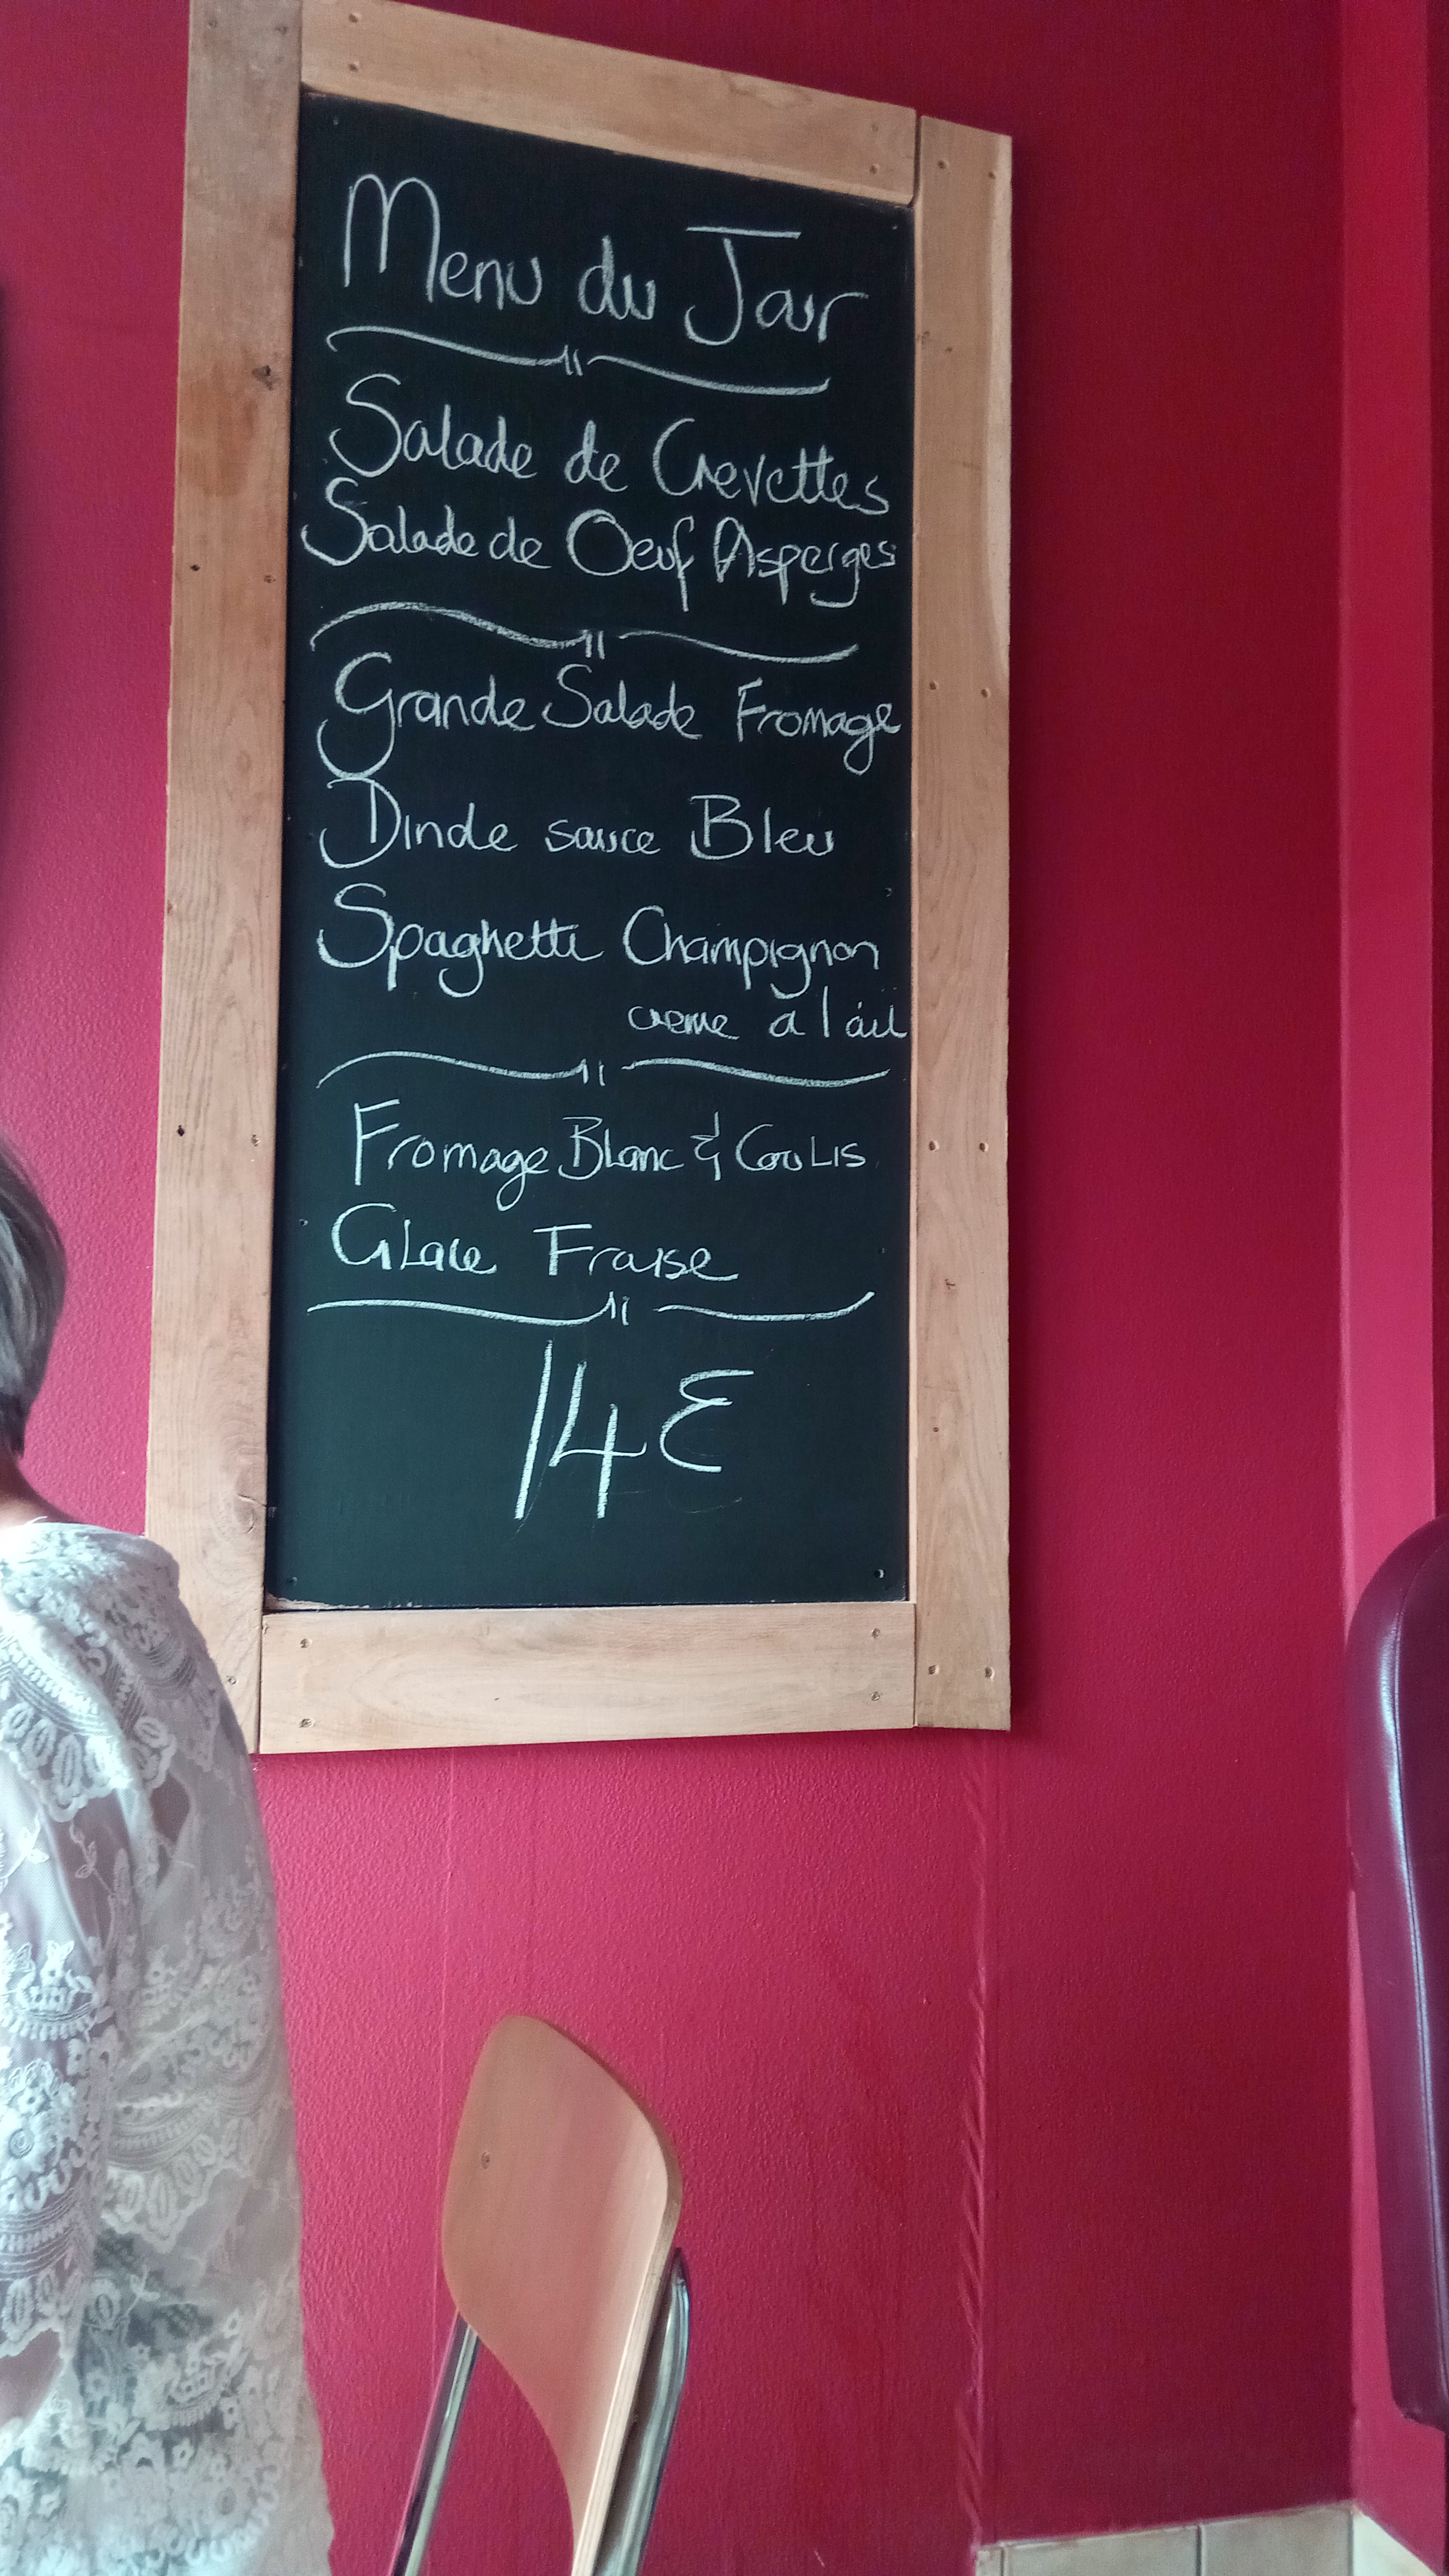 Menu du Jour
Salade de Crevettes
Salade de Oeuf Asperges
Grande Salade Fromage
Dinde sauce Bleu
Spaghetti Champignon
creme a l'ail
Fromage Blanc & Coulis
Glace Fraise
14€